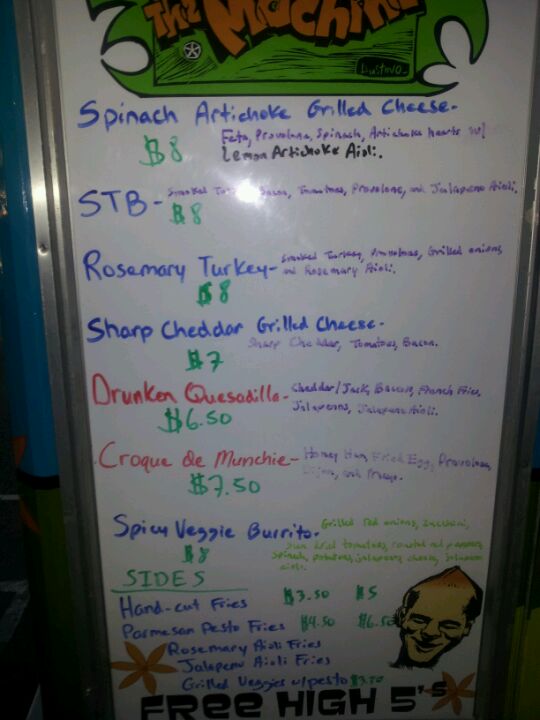 The Machine
Gustavo
Spinach Artichoke Grilled Cheese-
$8
Feta, Provolone, Spinach, Artichoke hearts w/
Lemon Artichoke Aioli.
STB-
Bacon, Tomatoes, Provolone, and Jalapeno Aioli.
$8
Rosemary Turkey-
Smoked Turkey, Provolone, Grilled onions,
and Rosemary Aioli.
$8
Sharp Cheddar Grilled Cheese-
Sharp Cheddar, Tomatoes, Bacon.
$7
Drunken Quesadilla-
Cheddar/Jack, Bacon, French Fries,
Jalapenos, Jalapeno Aioli.
$6.50
Croque de Munchie-
Honey Ham, Fried Egg, Provolone,
Dijon, and
$7.50
Spicy Veggie Burrito-
Grilled Red onions, Zucchini,
$8
Sun dried tomatoes, roasted red peppers,
Spinach, potatoes, jalapenos, cheese, jalapeno
aioli.
SIDES
Hand-cut Fries $3.50 $5
Parmesan Pesto Fries $4.50 $6.50
Rosemary Aioli Fries
Jalapeno Aioli Fries
Grilled Veggies w/pesto $3.50
FREE HIGH 5'S